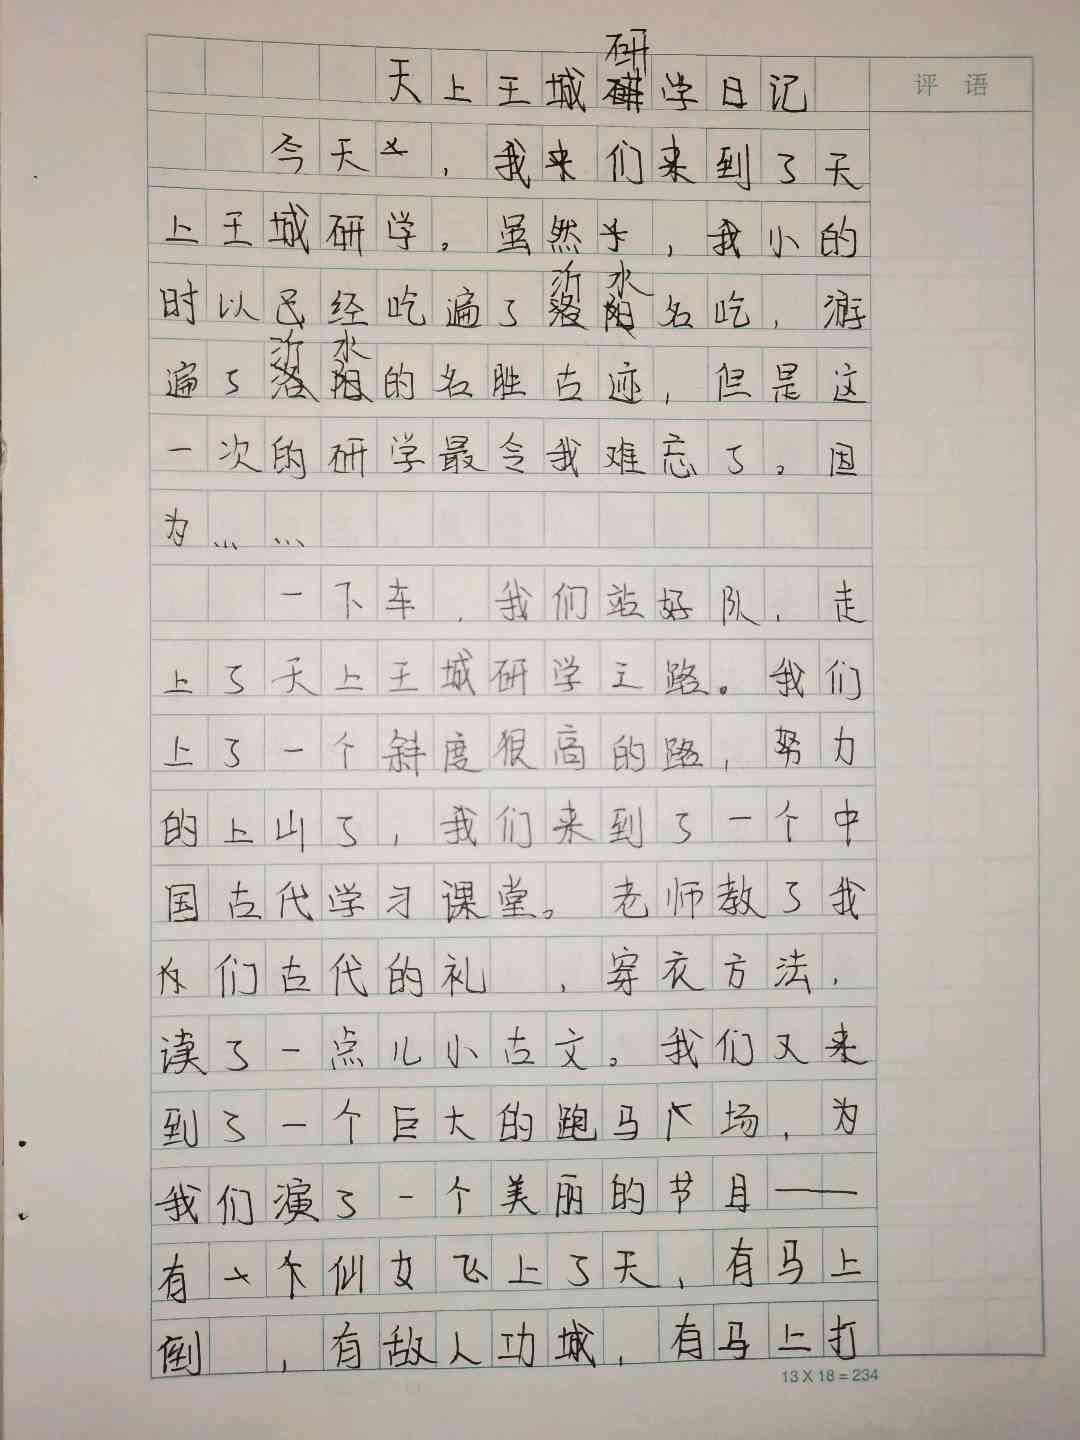 天上王城研学日记
评 语
今天，我来们来到了天
上王城研学。虽然，我小的
时以已经吃遍了沂水名吃，游
遍了沂水的名胜古迹，但是这
一次的研学最令我难忘了。因
为……
一下车，我们站好队，走
上了天上王城研学之路。我们
上了一个斜度很高的路，努力
的上山了，我们来到了一个中
国古代学习课堂。老师教了我
们古代的礼，穿衣方法，
读了一点儿小古文。我们又来
到了一个巨大的跑马广场，为
我们演了一个美丽的节目——
有个仙女飞上了天，有马上
倒，有敌人功城，有马上打
13 X 18 = 234